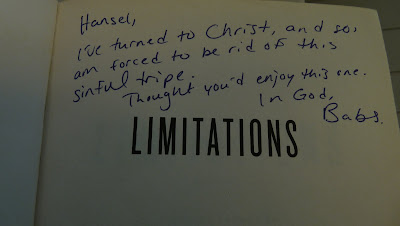 Hansel,
I've turned to Christ, and so,
am forced to be rid of this
sinful tripe.
Thought you'd enjoy this one.
In God,
Babs.
LIMITATIONS